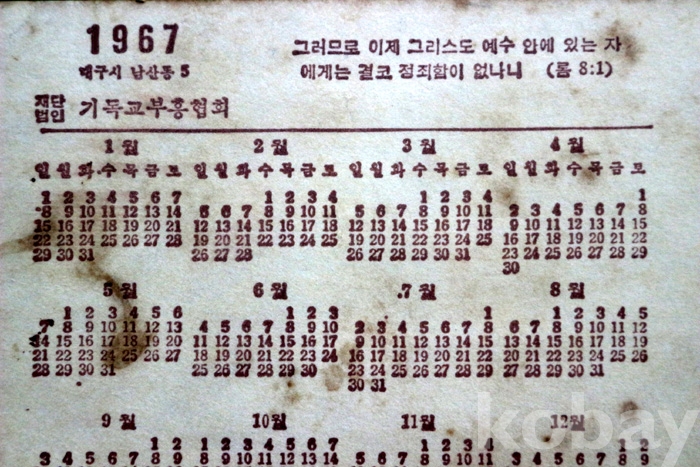 1967
대구시 남산동 5
그러므로 이제 그리스도 예수 안에 있는 자
에게는 결코 정죄함이 없나니 (롬 8:1)
재단법인 기독교부흥협회
1월 2월 3월 4월
일 월 화 수 목 금 토 일 월 화 수 목 금 토 일 월 화 수 목 금 토 일 월 화 수 목 금 토
1 2 3 4 5 6 7 1 2 3 4 1 2 3 4 1
8 9 10 11 12 13 14 5 6 7 8 9 10 11 5 6 7 8 9 10 11 2 3 4 5 6 7 8
15 16 17 18 19 20 21 12 13 14 15 16 17 18 12 13 14 15 16 17 18 9 10 11 12 13 14 15
22 23 24 25 26 27 28 19 20 21 22 23 24 25 19 20 21 22 23 24 25 16 17 18 19 20 21 22
29 30 31 26 27 28 26 27 28 29 30 31 23 24 25 26 27 28 29
30
5월 6월 7월 8월
1 2 3 4 5 6 1 2 3 1 1 2 3 4 5
7 8 9 10 11 12 13 4 5 6 7 8 9 10 2 3 4 5 6 7 8 6 7 8 9 10 11 12
14 15 16 17 18 19 20 11 12 13 14 15 16 17 9 10 11 12 13 14 15 13 14 15 16 17 18 19
21 22 23 24 25 26 27 18 19 20 21 22 23 24 16 17 18 19 20 21 22 20 21 22 23 24 25 26
28 29 30 31 25 26 27 28 29 30 23 24 25 26 27 28 29 27 28 29 30 31
30 31
9월 10월 11월 12월
1 2 1 2 3 4 5 6 7 1 2 3 4 1 2
3 4 5 6 7 8 9 8 9 10 11 12 13 14 5 6 7 8 9 10 11 3 4 5 6 7 8 9
kobay